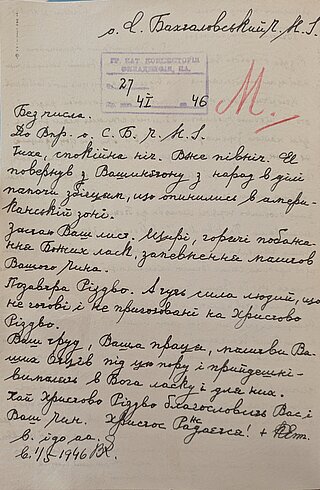 о. С. Бахталовський, Ч. М. І.
ГР. КАТ. КОНСИСТОРІЯ
ФИЛАДЕЛФІЯ, ПА.
27
4/I 46
М.
Без числа.
До Впр. о. С. Б. Ч. М. І.
Тиха, спокійна ніч. Вже північ. Я
повернув з Вашингтону з нарад в ділі
помочи збігцям, що опинились в амери-
канській зоні.
Застав Ваш лист. Щирі, горячі побажа-
ння Божих ласк, запевнення молитов
Вашого Чина.
Позавтра Різдво. А тут сила людий, що
не готові і не приготовані на Христово
Різдво.
Ваш труд, Ваша праця, молитви Ва-
ших Отців під цю пору і прийдешні-
вимолять в Бога ласку і для них.
Хай Христово Різдво благословить Вас і
Ваш Чин. Христос Раждається! +
5/I 1946